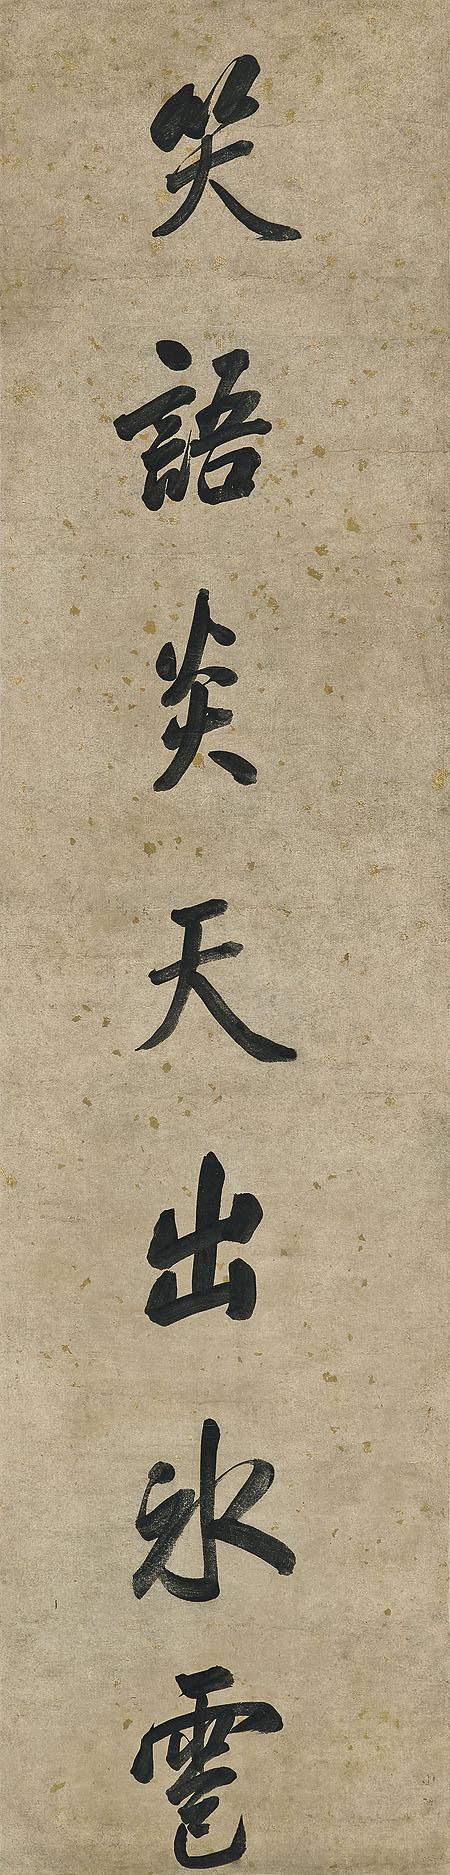 笑語炎天出冰雹